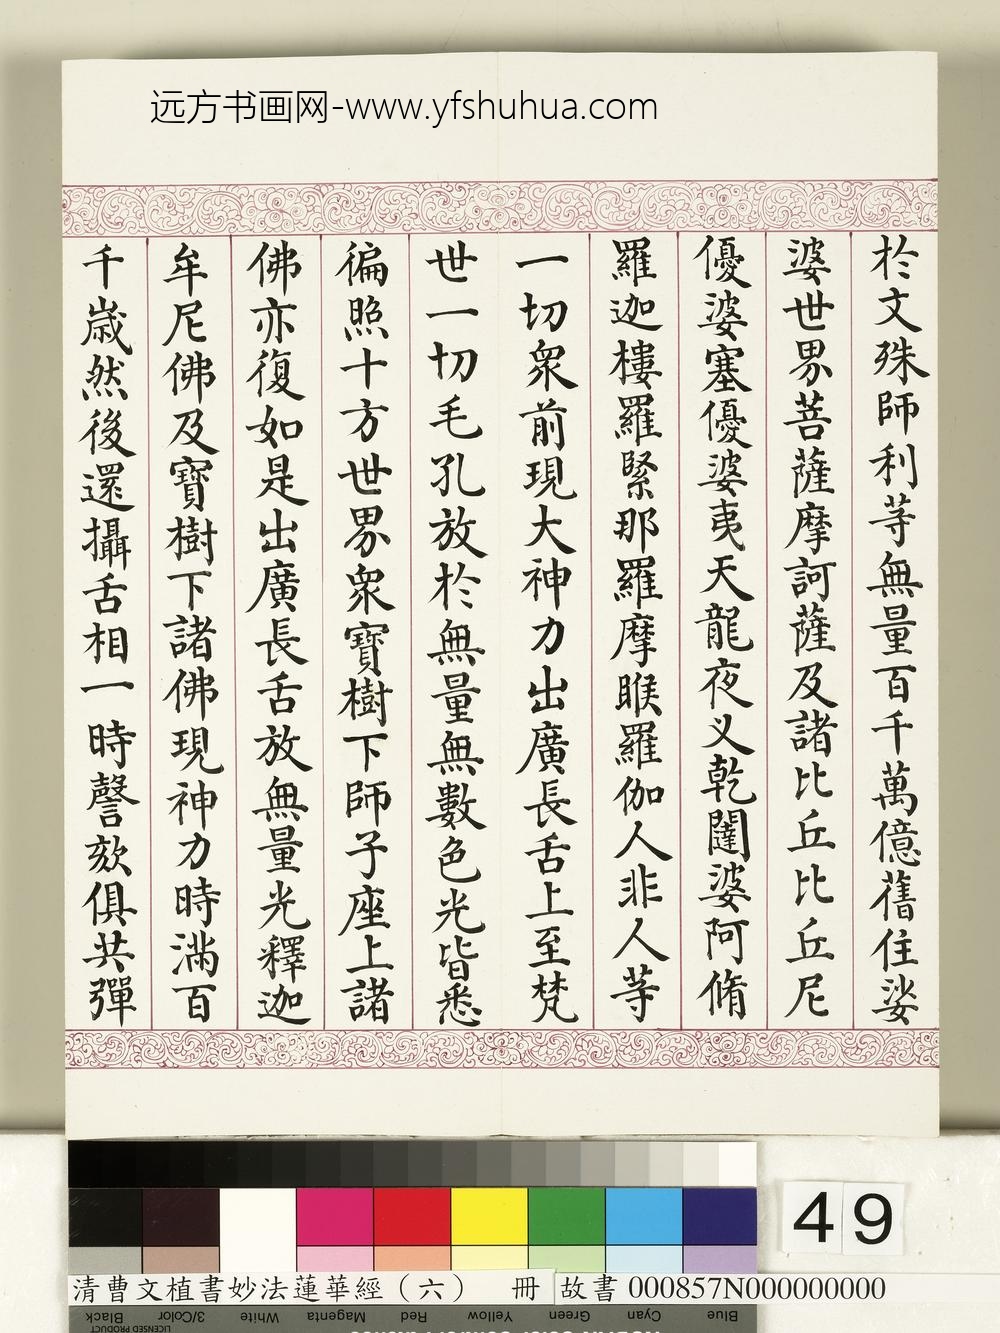 远方书画网-www.yfshuhua.com
於文殊師利等無量百千萬億舊住娑
婆世界菩薩摩訶薩及諸比丘比丘尼
優婆塞優婆夷天龍夜义乾闥婆阿脩
羅迦樓羅緊那羅摩睺羅伽人非人等
一切衆前現大神力出廣長舌上至梵
世一切毛孔放於無量無數色光皆悉
徧照十方世界衆寶樹下師子座上諸
佛亦復如是出廣長舌放無量光釋迦
牟尼佛及寶樹下諸佛現神力時滿百
千歲然後還攝舌相一時謦欬俱共彈
49
清曹文植書妙法蓮華經（六） 冊
故書 000857N000000000
Black 3/Color White Magenta Red Yellow Green Cyan Blue
LICENSED PRODUCT